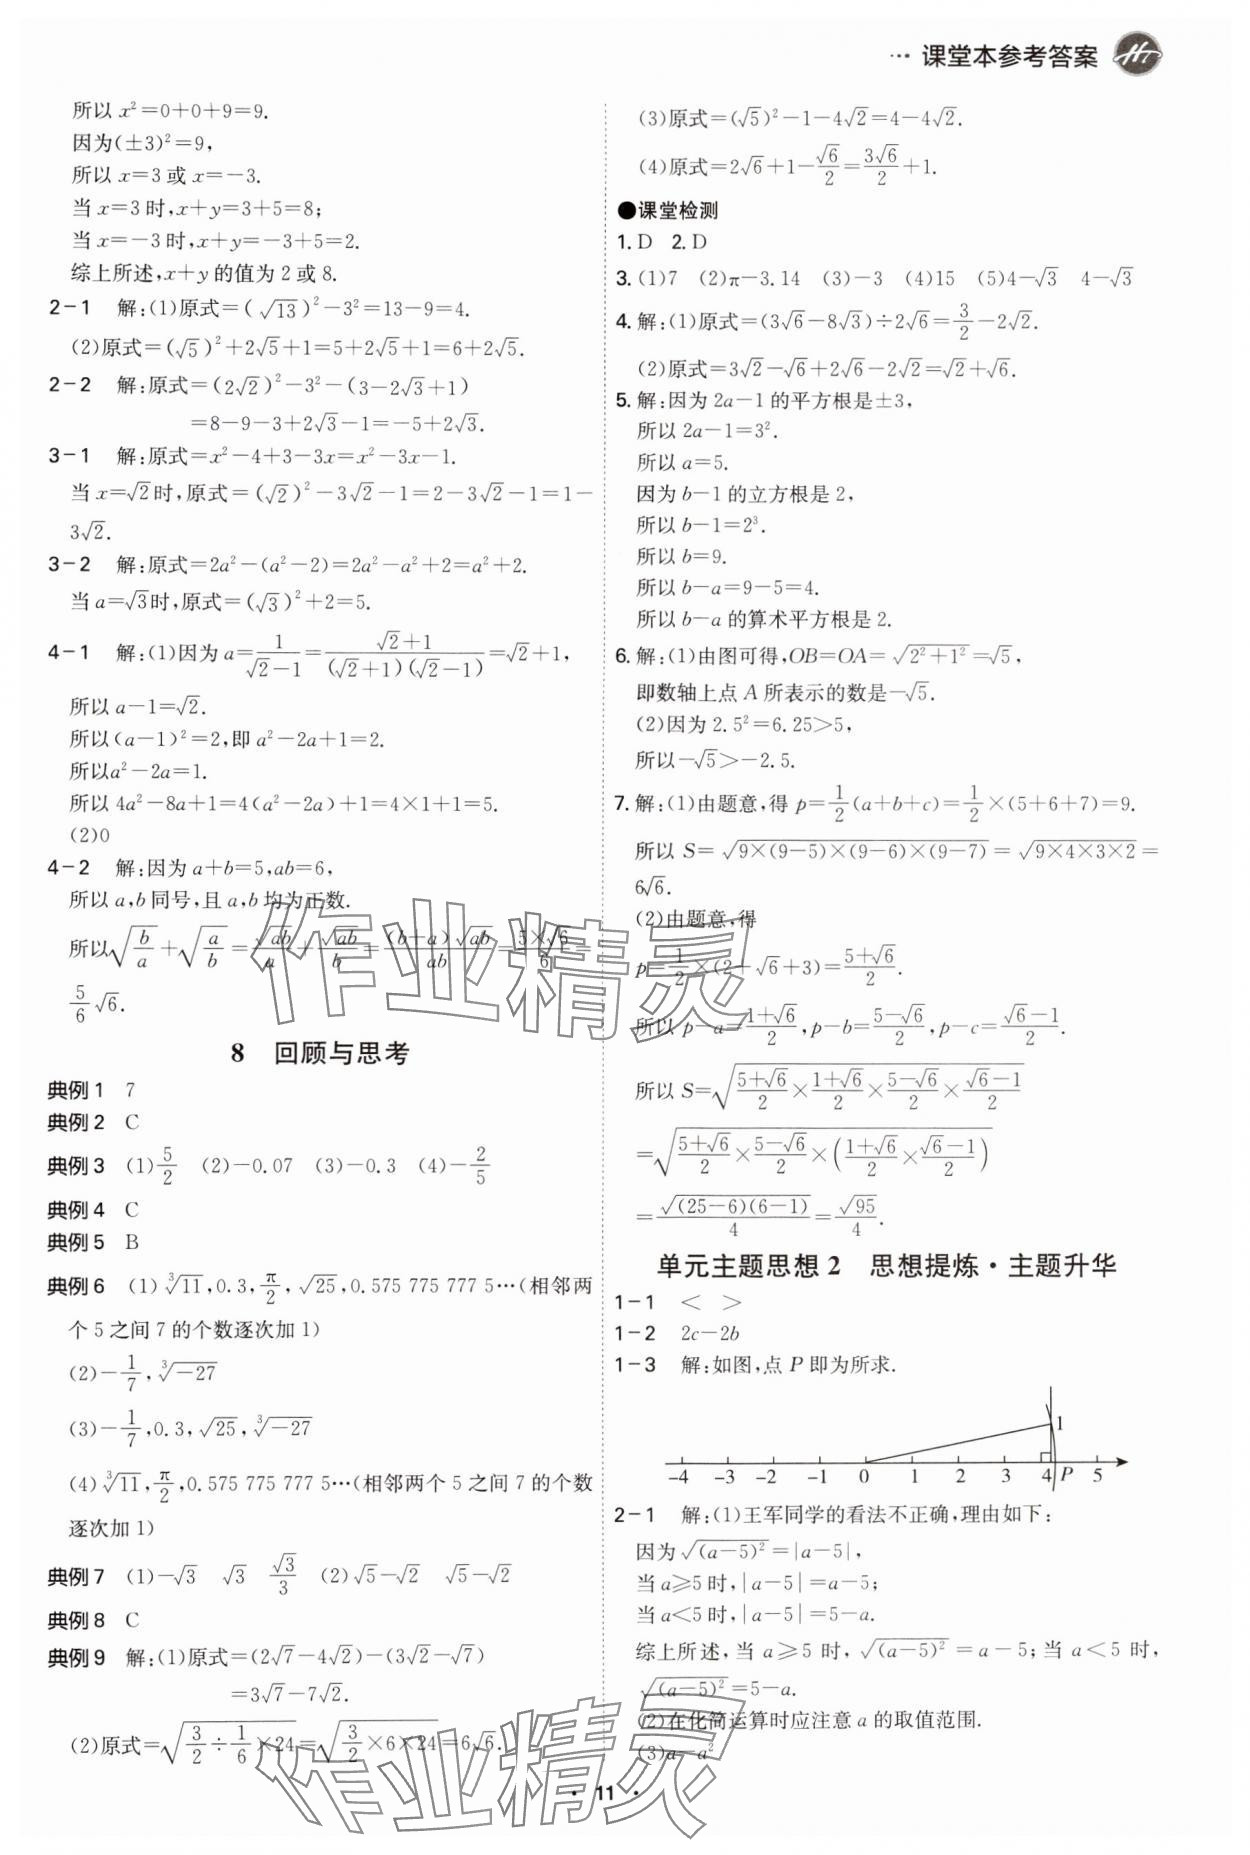 ··· 课堂本参考答案
所以 x²=0+0+9=9.
因为(±3)²=9,
所以 x=3 或 x=-3.
当 x=3 时,x+y=3+5=8;
当 x=-3 时,x+y=-3+5=2.
综上所述,x+y 的值为 2 或 8.
2-1 解:(1)原式=(√13)²-3²=13-9=4.
(2)原式=(√5)²+2√5+1=5+2√5+1=6+2√5.
2-2 解:原式=(2√2)²-3²-(3-2√3+1)
=8-9-3+2√3-1=-5+2√3.
3-1 解:原式=x²-4+3-3x=x²-3x-1.
当 x=√2时,原式=(√2)²-3√2-1=2-3√2-1=1-
3√2.
3-2 解:原式=2a²-(a²-2)=2a²-a²+2=a²+2.
当 a=√3时,原式=(√3)²+2=5.
4-1 解:(1)因为 a=1/(√2-1)=(√2+1)/((√2+1)(√2-1))=√2+1,
所以 a-1=√2.
所以(a-1)²=2,即 a²-2a+1=2.
所以a²-2a=1.
所以 4a²-8a+1=4(a²-2a)+1=4×1+1=5.
(2)0
4-2 解:因为 a+b=5,ab=6,
所以 a,b 同号,且 a,b 均为正数.
所以√(b/a)+√(a/b)=√ab/a+√ab/b=(b+a)√ab/ab=5×√6/6=
5/6 √6.
8 回顾与思考
典例 1 7
典例 2 C
典例 3 (1)5/2 (2)-0.07 (3)-0.3 (4)-2/5
典例 4 C
典例 5 B
典例 6 (1)∛11,0.3,π/2,√25,0.575 775 777 5…(相邻两
个 5 之间 7 的个数逐次加 1)
(2)-1/7,∛-27
(3)-1/7,0.3,√25,∛-27
(4)∛11,π/2,0.575 775 777 5…(相邻两个 5 之间 7 的个数
逐次加 1)
典例 7 (1)-√3 √3 √3/3 (2)√5-√2 √5-√2
典例 8 C
典例 9 解:(1)原式=(2√7-4√2)-(3√2-√7)
=3√7-7√2.
(2)原式=√(3/2÷1/6×24)=√(3/2×6×24)=6√6.
(3)原式=(√5)²-1-4√2=4-4√2.
(4)原式=2√6+1-√6/2=3√6/2+1.
●课堂检测
1. D 2. D
3. (1)7 (2)π-3.14 (3)-3 (4)15 (5)4-√3 4-√3
4. 解:(1)原式=(3√6-8√3)÷2√6=3/2-2√2.
(2)原式=3√2-√6+2√6-2√2=√2+√6.
5. 解:因为 2a-1 的平方根是±3,
所以 2a-1=3².
所以 a=5.
因为 b-1 的立方根是 2,
所以 b-1=2³.
所以 b=9.
所以 b-a=9-5=4.
所以 b-a 的算术平方根是 2.
6. 解:(1)由图可得,OB=OA=√(2²+1²)=√5,
即数轴上点 A 所表示的数是-√5.
(2)因为 2.5²=6.25>5,
所以-√5>-2.5.
7. 解:(1)由题意,得 p=1/2(a+b+c)=1/2×(5+6+7)=9.
所以 S=√(9×(9-5)×(9-6)×(9-7))=√(9×4×3×2)=
6√6.
(2)由题意,得
p=1/2×(2+√6+3)=(5+√6)/2.
所以 p-a=(1+√6)/2,p-b=(5-√6)/2,p-c=(√6-1)/2.
所以 S=√((5+√6)/2×(1+√6)/2×(5-√6)/2×(√6-1)/2)
=√((5+√6)/2×(5-√6)/2×((1+√6)/2×(√6-1)/2))
=√((25-6)(6-1))/4=√95/4.
单元主题思想 2 思想提炼·主题升华
1-1 < >
1-2 2c-2b
1-3 解:如图,点 P 即为所求.
1
-4 -3 -2 -1 0 1 2 3 4 P 5
2-1 解:(1)王军同学的看法不正确,理由如下:
因为√((a-5)²)=|a-5|,
当 a≥5 时,|a-5|=a-5;
当 a<5 时,|a-5|=5-a.
综上所述,当 a≥5 时,√((a-5)²)=a-5;当 a<5 时,
√((a-5)²)=5-a.
(2)在化简运算时应注意 a 的取值范围.
(3)a-a²
· 11 ·
作业精灵
作业精灵